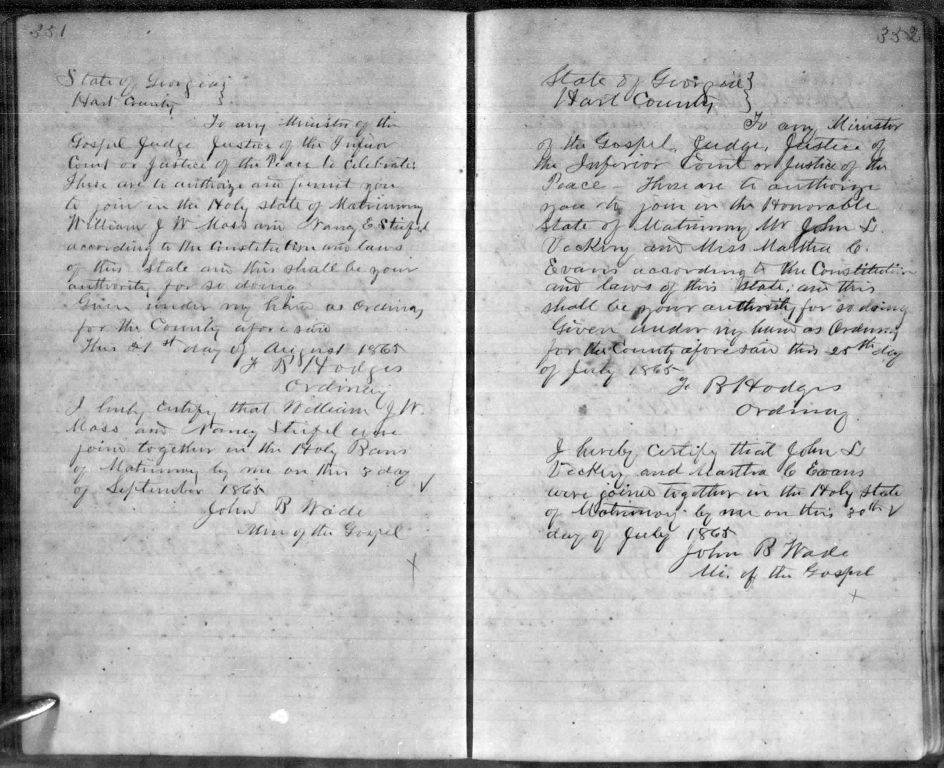 351
State of Georgia }
Hart County }
To any Minister of the
Gospel Judge Justice of the Inferior
Court or Justice of the Peace to Celebrate
These are to authorize and permit you
to join in the Holy state of Matrimony
William J W Moss and Nancy E
according to the Constitution and laws
of this State and this shall be your
authority for so doing
Given under my hand as Ordinary
for the County afore said
This 21st day of August 1865
F B Hodges
Ordinary
I hereby certify that William J W.
Moss and Nancy were
join together in the Holy Bans
of Matrimony by me on this 3 day
of September 1865
John B Wade
Min of the Gospel
352
State of Georgia }
Hart County }
To any Minister
of the Gospel, Judge, Justice of
the Inferior Court or Justice of the
Peace - These are to authorize
you to join in the Honorable
State of Matrimony Mr John L
Vickery and Miss Martha C.
Evans according to the Constitution
and laws of this State, and this
shall be your authority for so doing
Given under my hand as Ordinary
for the County afore said this 25th day
of July 1865
F B Hodges
Ordinary
I hereby certify that John L
Vickery and Martha C Evans
were joined together in the Holy state
of Matrimony by me on this 30th
day of July 1865
John B Wade
Mi. of the Gospel